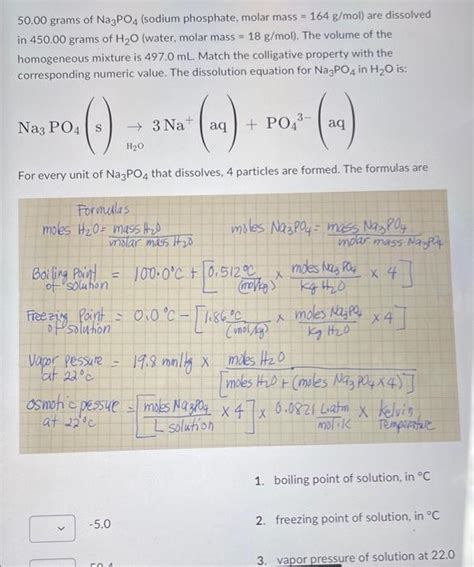 50.00 grams of Na3PO4 (sodium phosphate, molar mass = 164 g/mol) are dissolved
in 450.00 grams of H2O (water, molar mass = 18 g/mol). The volume of the
homogeneous mixture is 497.0 mL. Match the colligative property with the
corresponding numeric value. The dissolution equation for Na3PO4 in H2O is:
Na3 PO4 (s) → 3 Na+ (aq) + PO4 3- (aq)
H2O
For every unit of Na3PO4 that dissolves, 4 particles are formed. The formulas are
Formulas
moles H2O = mass H2O / molar mass H2O   moles Na3PO4 = mass Na3PO4 / molar mass Na3PO4
Boiling Point of solution = 100.0°C + [0.512 °C / (mol/kg) x moles Na3PO4 / Kg H2O x 4]
Freezing Point of solution = 0.0°C - [1.86 °C / (mol/kg) x moles Na3PO4 / Kg H2O x 4]
Vapor pessure at 22°C = 19.8 mmHg x moles H2O / [moles H2O + (moles Na3PO4 x 4)]
Osmotic pessure at 22°C = [moles Na3PO4 / L solution x 4] x 0.0821 L·atm / mol·K x Kelvin Temperature
1. boiling point of solution, in °C
-5.0
2. freezing point of solution, in °C
3. vapor pressure of solution at 22.0